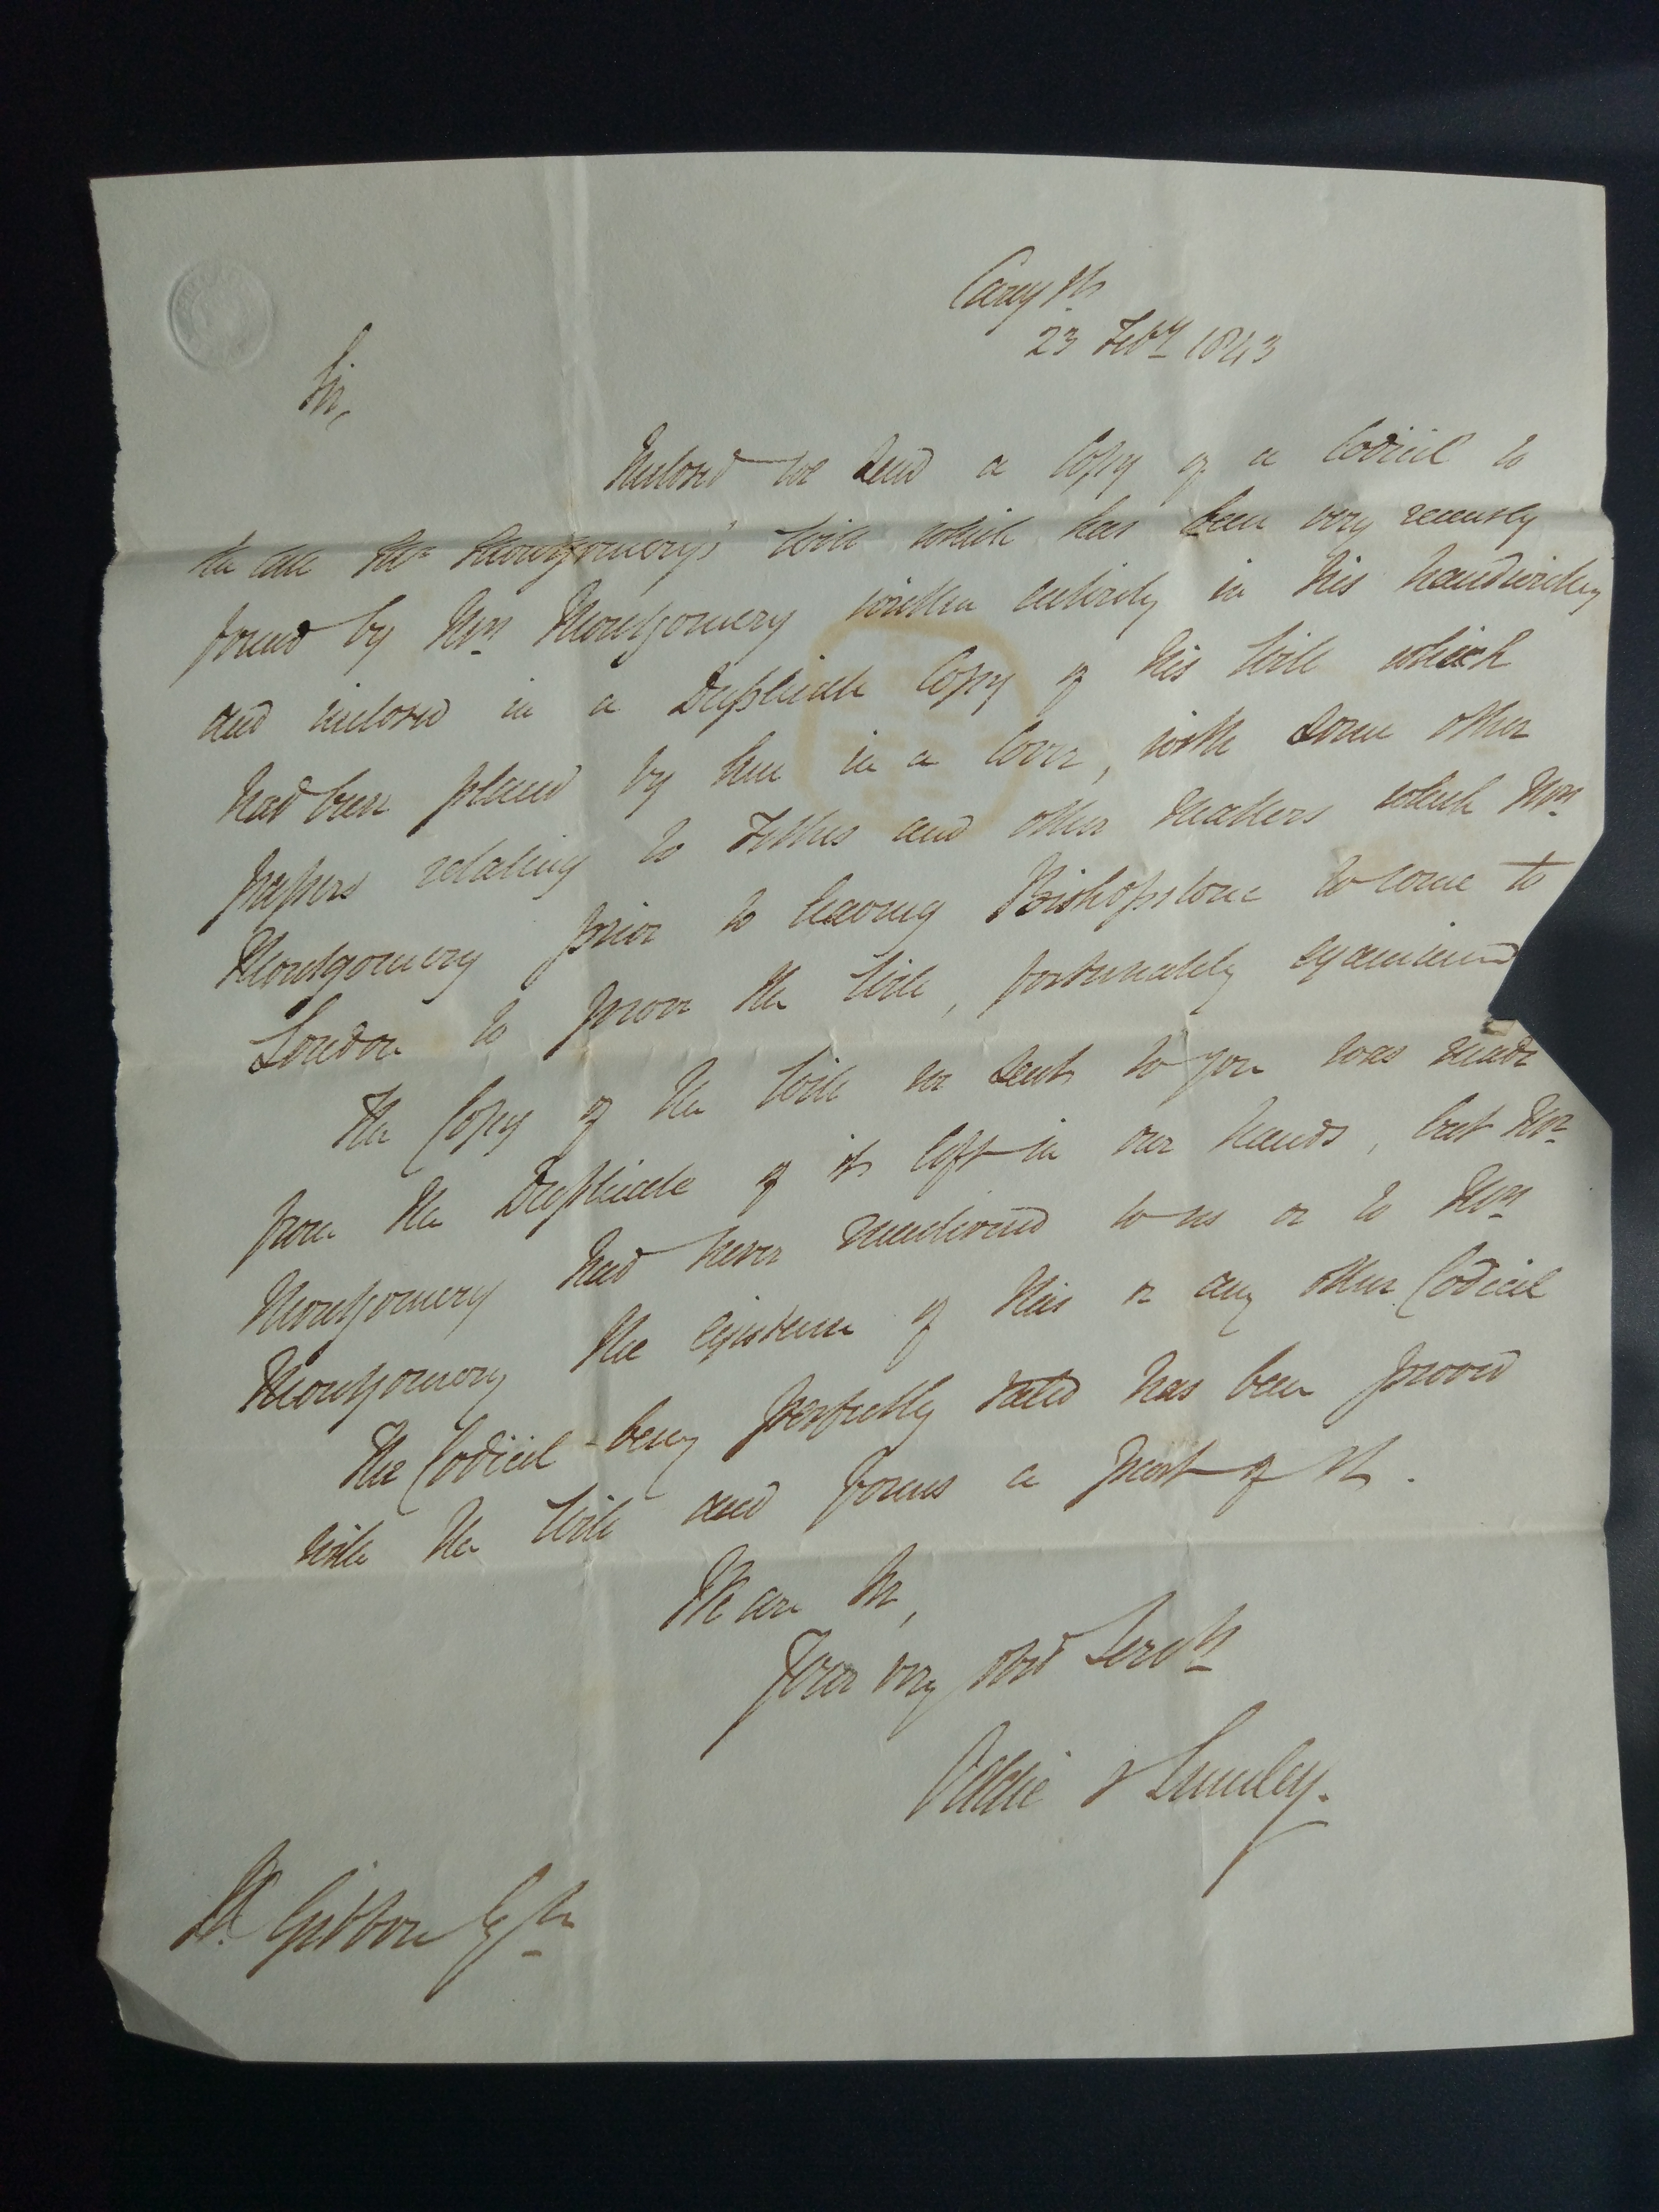 Carey St
23 Feby 1843
Sir,
Inclosed we send a Copy of a Codicil to
the late Mr Montgomery's Will which has been very recently
found by Mrs Montgomery written entirely in his handwriting
and inclosed in a Duplicate Copy of his Will which
had been placed by him in a Cover, with some other
papers relating to Tithes and other matters which Mrs
Montgomery prior to leaving Bishopstone to come to
London to prove the Will, fortunately examined
The Copy of the Will we sent to you was made
from the Duplicate of it left in our hands, but Mr
Montgomery had never mentioned to us or to Mrs
Montgomery the existence of this or any other Codicil
The Codicil being perfectly valid has been proved
with the Will and forms a part of it.
We are Sir,
Your very obed Servts
Oddie & Lumley.
Gibbon Esqre